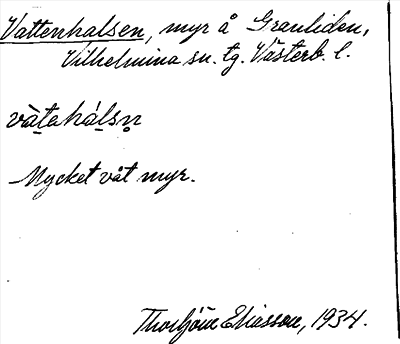 Vattenhalsen, myr å Granliden,
Vilhelmina sn. tg. Västerb. l.
vàtahálsn̥
Mycket våt myr.
Thorbjörn Eliasson, 1934.